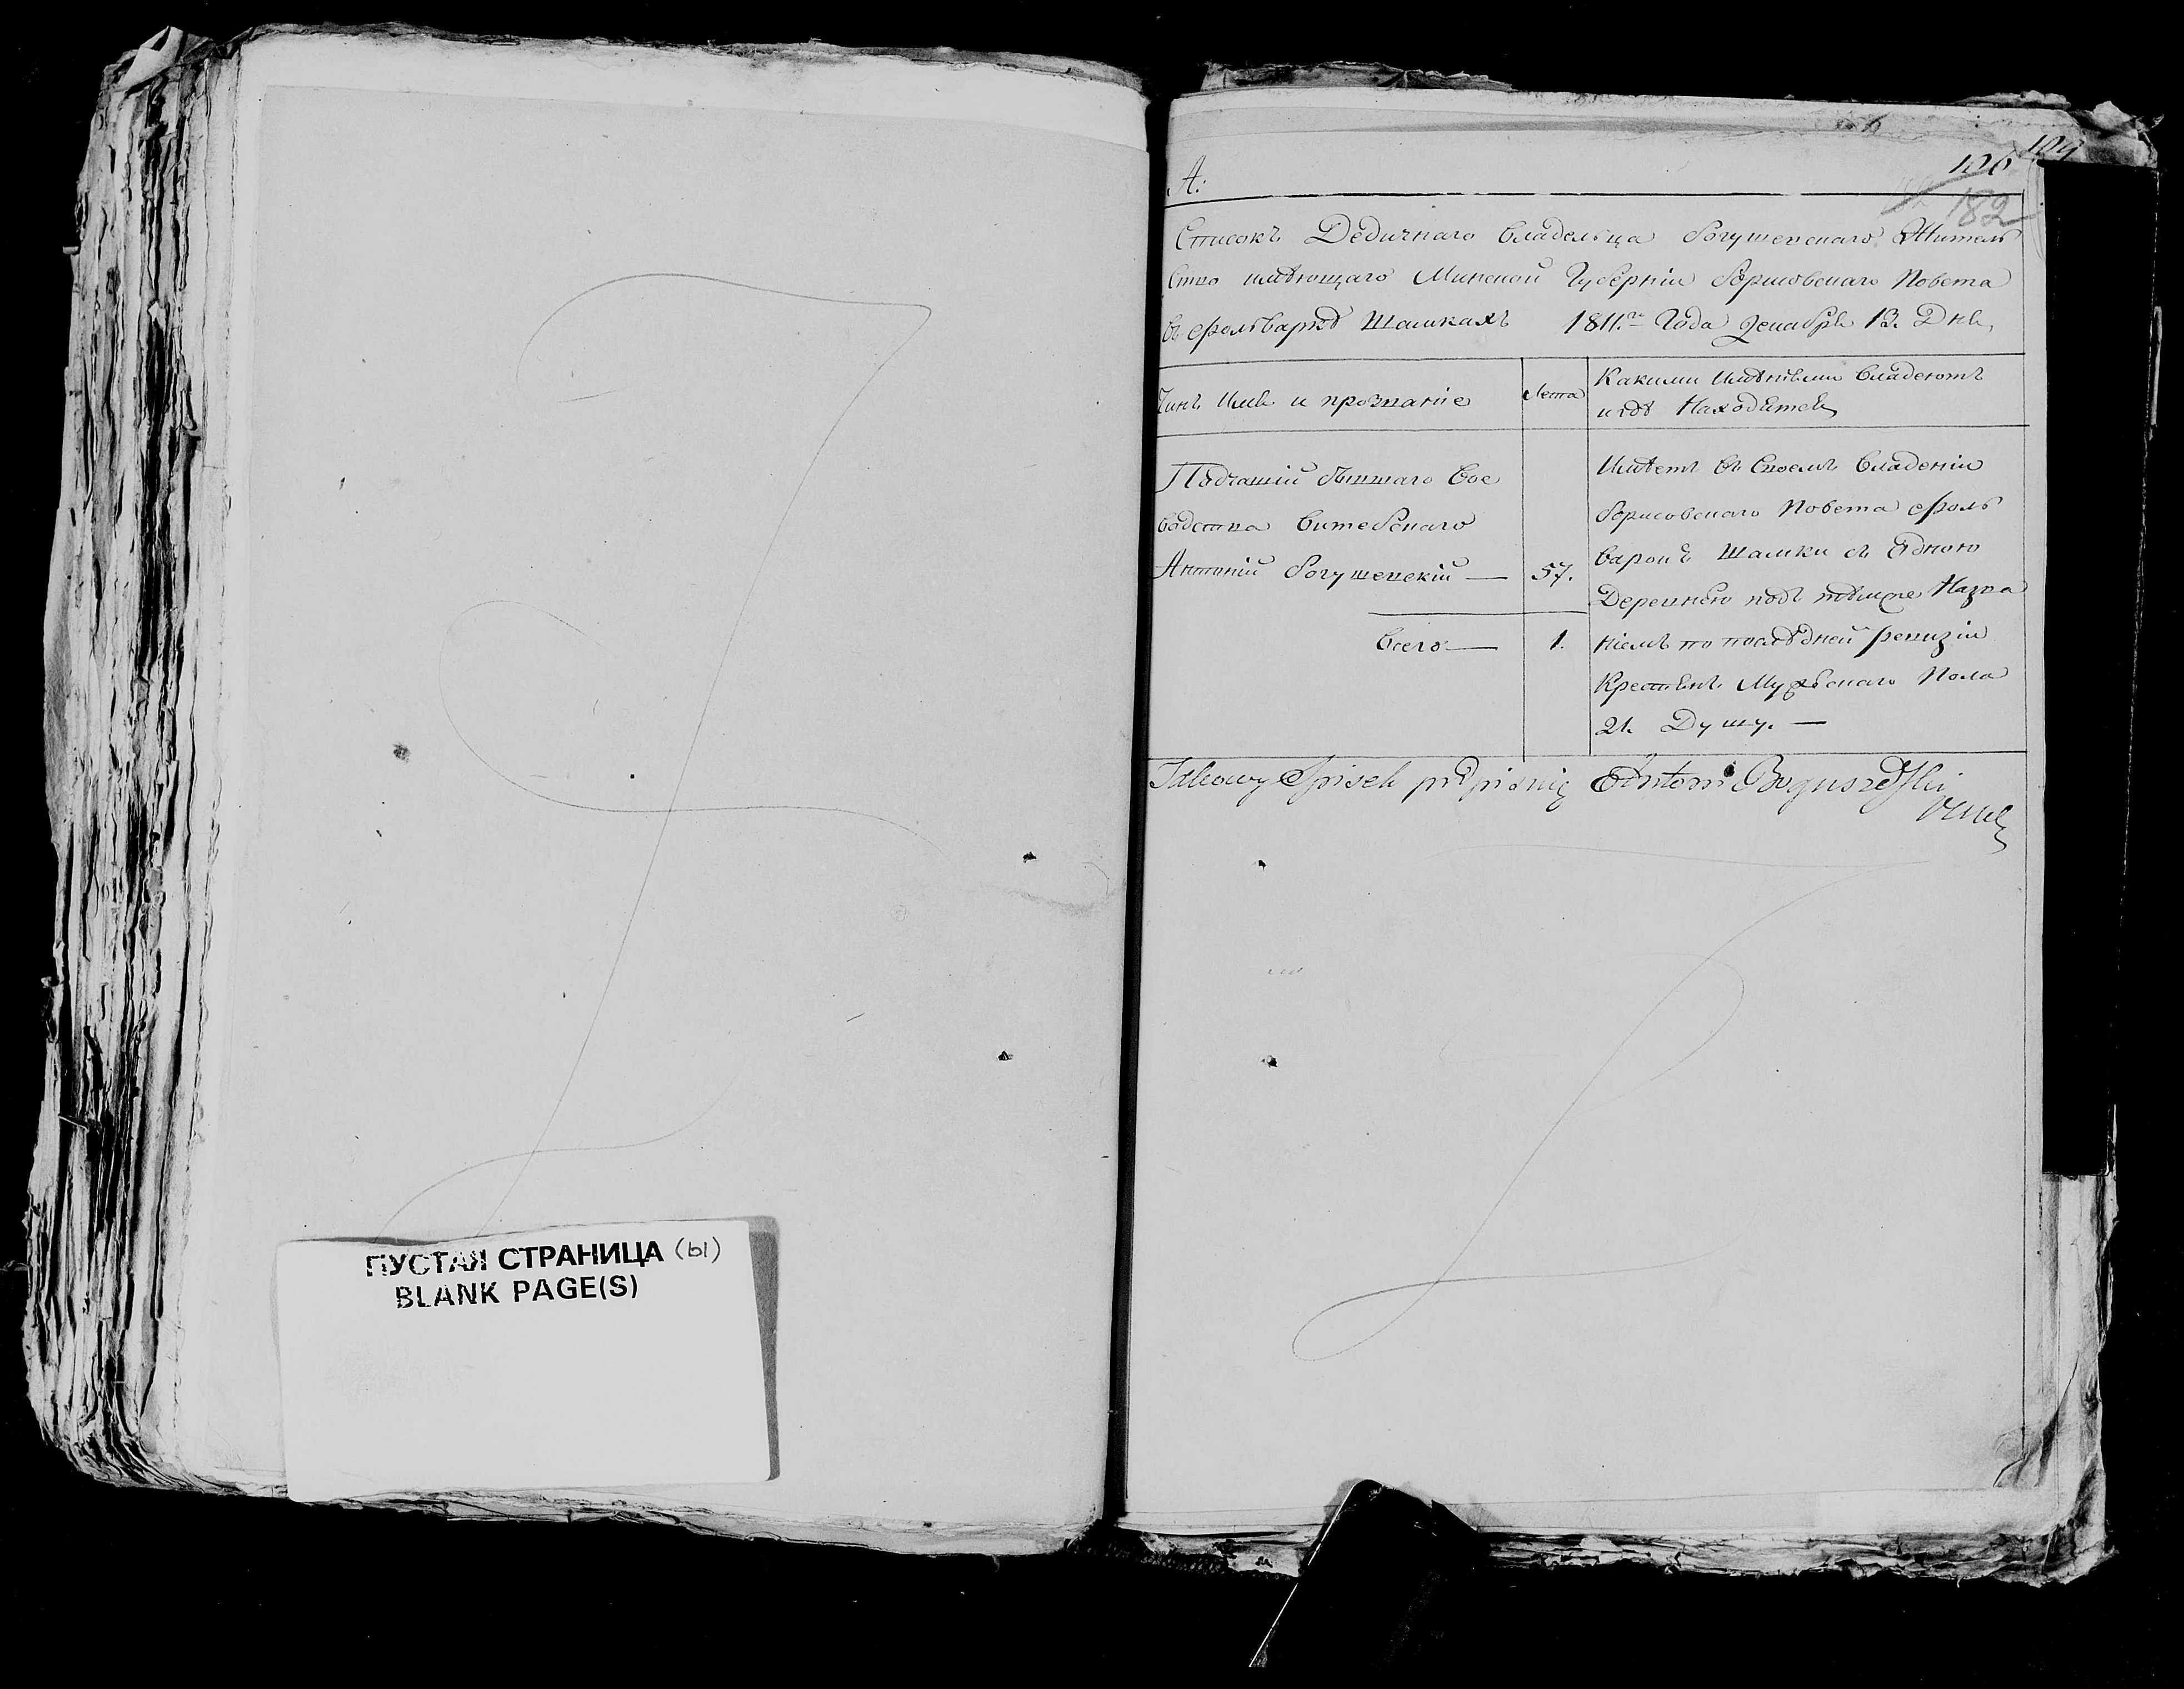 ПУСТАЯ СТРАНИЦА (ы)
BLANK PAGE(S)
А:
126
182
Списокъ Дедичнаго владельца Богушевскаго Жител
ство имѣющаго Минской Губерніи Борисовскаго Повета
въ фольваркѣ Шалкахъ 1811.го Года Декабря 13. Дня,
Чинъ Имя и прозваніе
Лета
Какими имѣніями владеютъ
и гдѣ Находятся
Падчашій бывшаго Вое
водства Витебскаго
Антоній Богушевскій —
57.
Всего —
1.
Имѣетъ въ Своемъ владеніи
Борисовскаго Повета фоль
варокъ Шалки съ Одною
Деревнею подъ тѣмжеНазва
ніемъ по последней ревизіи
Крестьянъ Мужескаго Пола
21. Душу. —
Takowy Spisek podpisuię Antoni Boguszewski